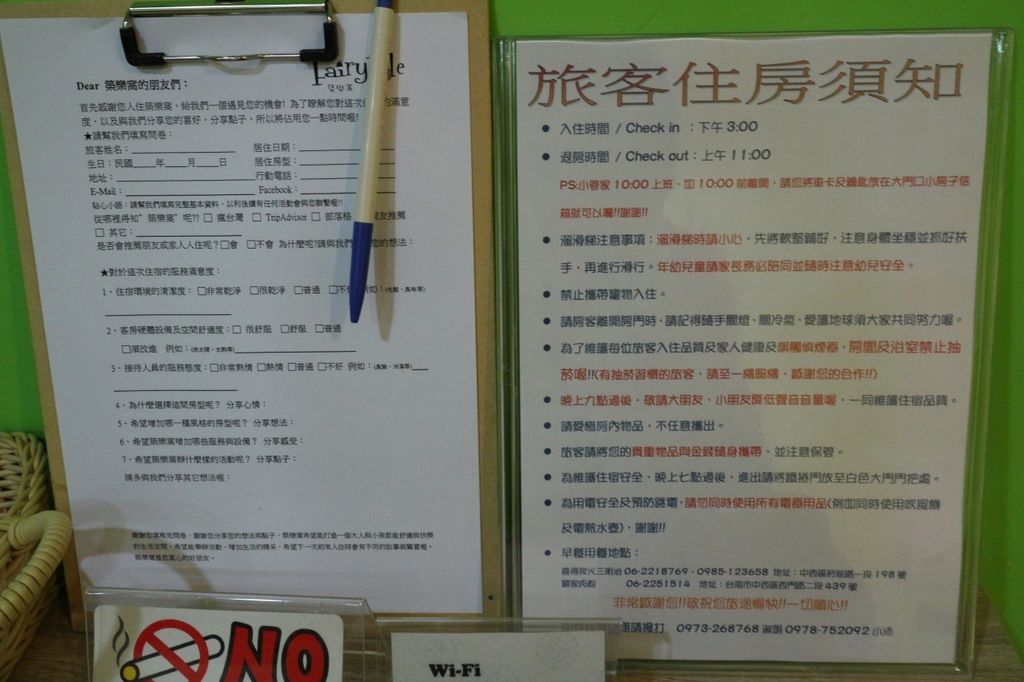 Dear 築樂窩的朋友們：
首先感謝您入住築樂窩，給我們一個遇見您的機會！為了解您對這次 的滿意
度，以及與我們分享您的喜好，分享點子，所以將佔用您一點時間喔!
★請幫我們填寫問卷：
旅客姓名： 居住日期：
生日：民國 年 月 日 居住房型：
地址： 行動電話：
E-Mail： Facebook：
貼心小語：請幫我們填寫完整基本資料，以利後續有任何活動會與您聯繫!!
從哪裡得知"築樂窩"呢?? □ 瘋台灣 □ TripAdvisor □ 部落格 友推薦
□ 其它：
是否會推薦朋友或家人入住呢？□會 □不會 為什麼呢?請與我們 您的想法：
★對於這次住宿的服務滿意度：
1、住宿環境的清潔度：□非常乾淨 □很乾淨 □普通 □不 例如：(毛髮、異味等)
2、客房硬體設備及空間舒適度：□ 很舒服 □舒服 □普通
□須改進 例如：(床太硬、太熱等)
3、接待人員的服務態度：□非常熱情 □熱情 □普通 □不好 例如：(臭臉、冷漠等)
4、為什麼選擇這間房型呢？ 分享心情：
5、希望增加哪一種風格的房型呢？ 分享想法：
6、希望築樂窩增加哪些服務與設備？ 分享感受：
7、希望築樂窩辦什麼樣的活動呢？ 分享點子：
請多與我們分享其它想法喔：
謝謝您填寫完問卷，謝謝您分享您的想法與點子，築樂窩希望能打造一個大人與小孩都能舒適與快樂
的生活空間，希望能舉辦活動，增加生活的精采，希望下一次的來入住時會有不同的故事與驚喜喔。
築樂窩是您真心的好朋友。
旅客住房須知
● 入住時間 / Check in ：下午 3:00
● 退房時間 / Check out：上午 11:00
PS:小管家 10:00 上班、如 10:00 前離開，請您將車卡及鑰匙放在大門口小房子信
箱就可以囉!!謝謝!!
● 溜滑梯注意事項：溜滑梯時請小心，先將軟墊鋪好，注意身體坐穩並抓好扶
手，再進行滑行。年幼兒童請家長務必陪同並隨時注意幼兒安全。
● 禁止攜帶寵物入住。
● 請房客離開房門時，請記得隨手關燈、關冷氣，愛護地球須大家共同努力喔。
● 為了維護每位旅客入住品質及家人健康及誤觸偵煙器，房間及浴室禁止抽
菸喔!!(有抽菸習慣的旅客，請至一樓騎樓，感謝您的合作!!)
● 晚上九點過後，敬請大朋友、小朋友降低聲音音量喔，一同維護住宿品質。
● 請愛惜房內物品，不任意攜出。
● 旅客請將您的貴重物品與金錢隨身攜帶，並注意保管。
● 為維護住宿安全，晚上七點過後，進出請將鐵捲門放至白色大門門把處。
● 為用電安全及預防跳電，請勿同時使用所有電器用品(例如同時使用吹風機
及電熱水壺)，謝謝!!
● 早餐用餐地點：
喜得炭火三明治 06-2218769、0985-123658 地址：中西區府前路一段 198 號
06-2251514 地址：台南市中西區西門路二段 439 號
非常感謝您!!敬祝您旅途愉快!!一切順心!!
請撥打 0973-268768 淑娟 0978-752092 小沛
NO
Wi-Fi